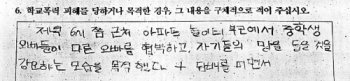 6. 학교폭력 피해를 당하거나 목격한 경우, 그 내용을 구체적으로 적어 주십시오.
저녁 6시 쯤 근처 아파트 놀이터 부근에서 중학생
오빠들이 다른 오빠를 협박하고, 자기들의 말을 들을 것을
강요하는 모습을 목격했다 + 담배를 피면서